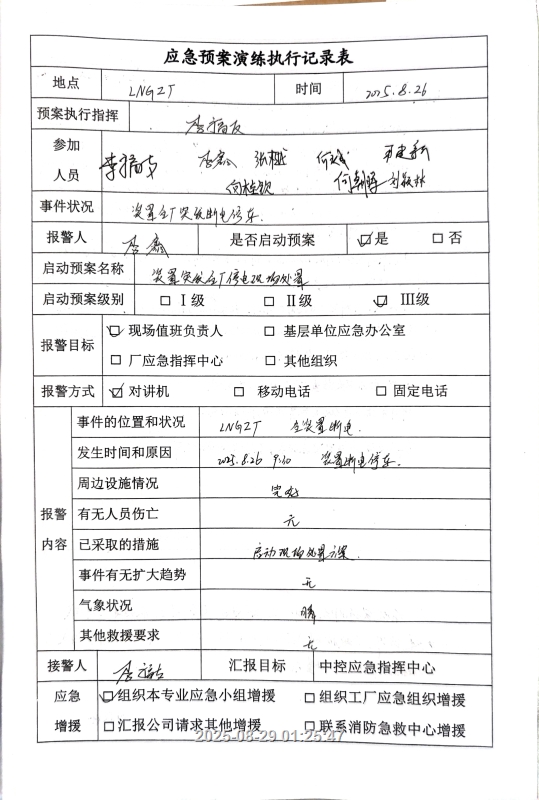 应急预案演练执行记录表
地点 LNGZT 时间 2025.8.26
预案执行指挥
参加
人员
事件状况 装置全厂突然断电停车.
报警人 李鑫 是否启动预案 ☑是 □否
启动预案名称 装置突然全厂停电现场处置
启动预案级别 □Ⅰ级 □Ⅱ级 ☑Ⅲ级
报警目标 ☑现场值班负责人 □基层单位应急办公室
□厂应急指挥中心 □其他组织
报警方式 ☑对讲机 □移动电话 □固定电话
报警内容 事件的位置和状况 LNGZT 全装置断电.
发生时间和原因 2025.8.26 9:10 装置断电停车.
周边设施情况 完好
有无人员伤亡 无
已采取的措施 启动现场处置方案.
事件有无扩大趋势 无
气象状况 晴
其他救援要求 无
接警人 汇报目标 中控应急指挥中心
应急 ☑组织本专业应急小组增援 □组织工厂应急组织增援
增援 □汇报公司请求其他增援 □联系消防急救中心增援
2025-08-29 01:25:47